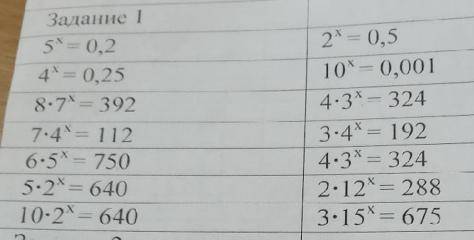 Задание 1
5ˣ = 0,2
2ˣ = 0,5
4ˣ = 0,25
10ˣ = 0,001
8·7ˣ = 392
4·3ˣ = 324
7·4ˣ = 112
3·4ˣ = 192
6·5ˣ = 750
4·3ˣ = 324
5·2ˣ = 640
2·12ˣ = 288
10·2ˣ = 640
3·15ˣ = 675